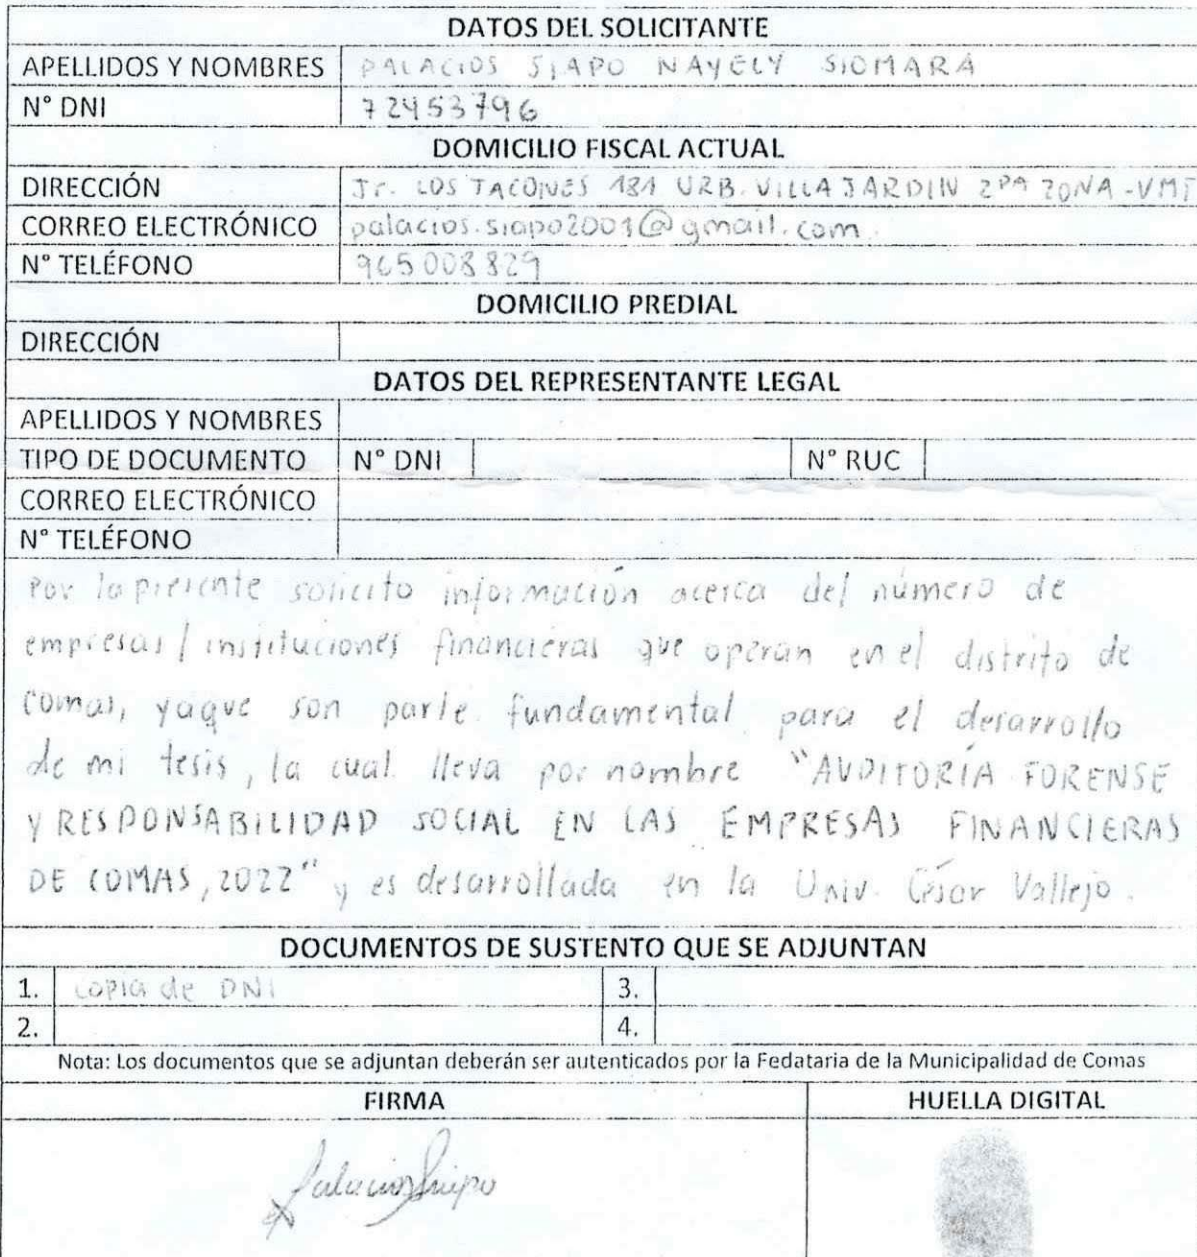 DATOS DEL SOLICITANTE
APELLIDOS Y NOMBRES PALACIOS SIAPO NAYELY SIOMARA
N° DNI 72453796
DOMICILIO FISCAL ACTUAL
DIRECCIÓN Jr. LOS TACONES 181 URB. VILLA JARDIN 2DA ZONA - VMT
CORREO ELECTRÓNICO palacios.siapo2001@gmail.com.
N° TELÉFONO 965008829
DOMICILIO PREDIAL
DIRECCIÓN
DATOS DEL REPRESENTANTE LEGAL
APELLIDOS Y NOMBRES
TIPO DE DOCUMENTO N° DNI N° RUC
CORREO ELECTRÓNICO
N° TELÉFONO
Por la presente solicito información acerca del número de
empresas / instituciones financieras que operan en el distrito de
Comas, yaque son parte fundamental para el desarrollo
de mi tesis, la cual lleva por nombre "AUDITORÍA FORENSE
Y RESPONSABILIDAD SOCIAL EN LAS EMPRESAS FINANCIERAS
DE COMAS, 2022" y es desarrollada en la Univ. César Vallejo.
DOCUMENTOS DE SUSTENTO QUE SE ADJUNTAN
1. Copia de DNI 3.
2. 4.
Nota: Los documentos que se adjuntan deberán ser autenticados por la Fedataria de la Municipalidad de Comas
FIRMA HUELLA DIGITAL
Palacios Siapo